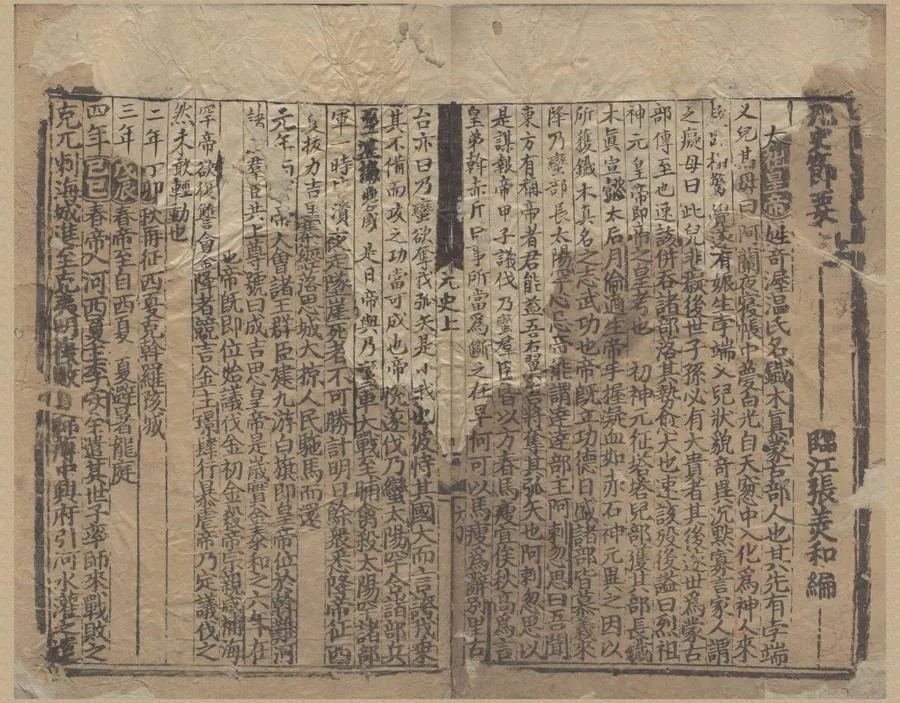 元史節要 臨江張美和編
太祖皇帝姓奇渥温氏名鐵木眞蒙古部人也其先有孛端
叉兒其母曰阿闌夜寢帳中夢白光自天窓中入化爲神人來
驚覺遂有娠生孛端叉兒狀貌奇異沉黙寡言家人謂
之癡母曰此兒非癡後世子孫必有大貴者其後遂世爲蒙古
部傳至也速該併吞諸部落其勢愈大也速該殁後謚曰烈祖
神元皇帝即帝之皇考也初神元征塔塔兒部獲其部長鐵
木眞宣懿太后月倫適生帝手握凝血如赤石神元異之因以
所獲鐵木真名之志武功也帝旣立功德日盛諸部皆慕義來
降乃蠻部長太陽罕心忌帝能謂達達部主阿剌忽思曰吾聞
東方有稱帝者君能益吾右翼吾將奪其弧矢也阿剌忽思以
是謀報帝甲子議伐乃蠻羣臣皆以方春馬瘦宜俟秋高爲言
皇弟斡赤斤曰事所當爲斷之在早何可以馬瘦爲辭别里古
元史上
台亦曰乃蠻欲奪我弧矢是小我也彼恃其國大而言誇我乘
其不備而攻之功當可成也帝恱遂伐乃蠻太陽罕合諸部兵
是日帝與乃蠻軍大戰至晡禽殺太陽罕諸部
軍一時潰夜走墜崖死者不可勝計明日餘衆悉降帝征西
夏拔力吉里寨經落思城大掠人民駞馬而還
元年帝大會諸王群臣建九游白旗即皇帝位於斡難河
群臣共上尊號曰成吉思皇帝是歲實金泰和之六年在
也帝旣即位始議伐金初金殺帝宗親咸補海
罕帝欲復讐會金降者競言金主璟肆行暴虐帝乃定議伐之
然未敢輕動也
二年丁卯秋再征西夏克斡羅孩城
三年戊辰春帝至自西夏夏避暑龍庭
四年己巳春帝入河西夏主李安全遣其世子率師來戰敗之
克兀剌海城進至克夷門薄中興府引河水灌之